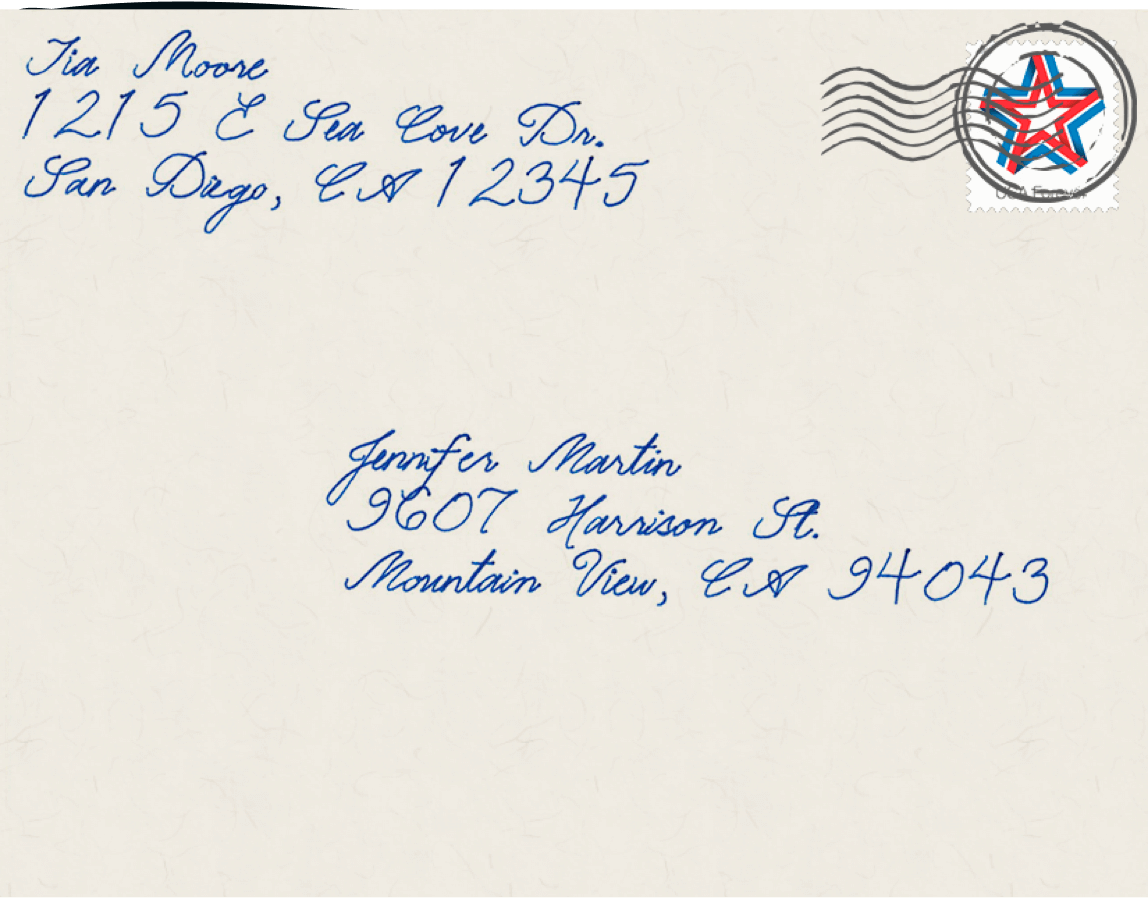 Tia Moore
1215 E Sea Cove Dr.
San Diego, CA 12345
USA Forever
Jennifer Martin
9607 Harrison St.
Mountain View, CA 94043